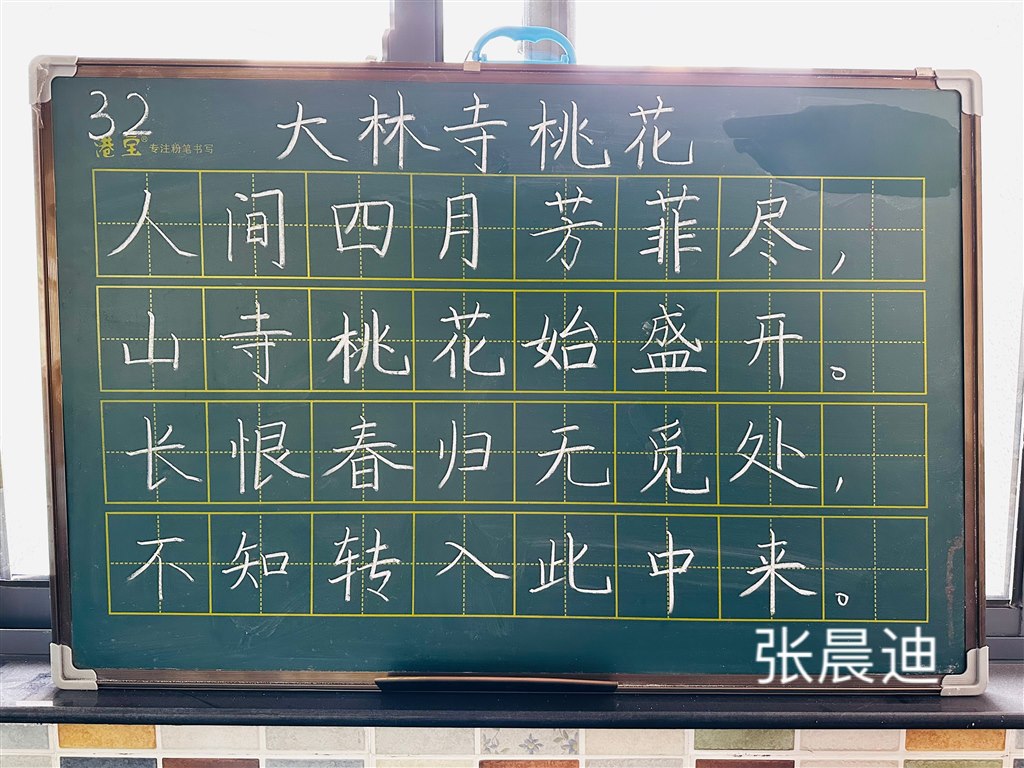 32
大林寺桃花
港宝® 专注粉笔书写
人间四月芳菲尽,
山寺桃花始盛开。
长恨春归无觅处,
不知转入此中来。
张晨迪